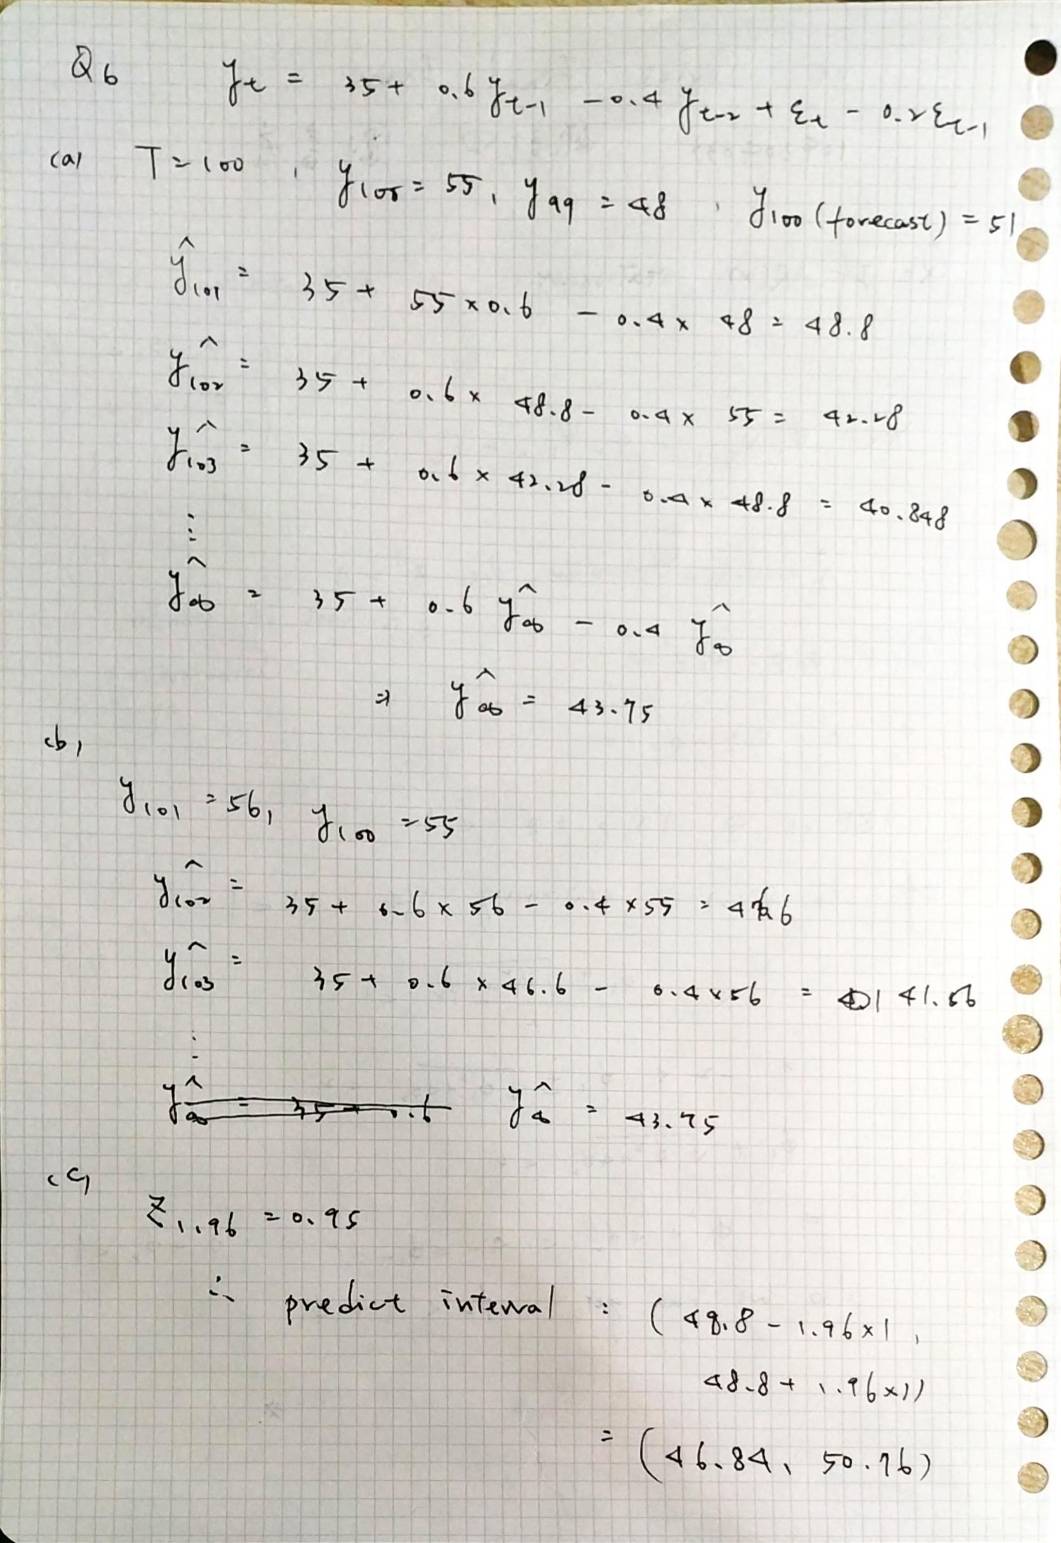 Q6 y_t = 35 + 0.6 y_{t-1} - 0.4 y_{t-2} + ε_t - 0.2 ε_{t-1}
(a) T = 100, y_{100} = 55, y_{99} = 48, y_{100} (forecast) = 51
ŷ_{101} = 35 + 55 × 0.6 - 0.4 × 48 = 48.8
ŷ_{102} = 35 + 0.6 × 48.8 - 0.4 × 55 = 42.28
ŷ_{103} = 35 + 0.6 × 42.28 - 0.4 × 48.8 = 40.848
⋮
ŷ_∞ = 35 + 0.6 ŷ_∞ - 0.4 ŷ_∞
⇒ ŷ_∞ = 43.75
(b)
y_{101} = 56, y_{100} = 55
ŷ_{102} = 35 + 0.6 × 56 - 0.4 × 55 = 46.6
ŷ_{103} = 35 + 0.6 × 46.6 - 0.4 × 56 = 41.56
⋮
ŷ_∞ = 35 + 0.6 ŷ_∞ = 43.75
(c)
Z_{1.96} = 0.95
∴ predict interval : (48.8 - 1.96 × 1,
48.8 + 1.96 × 1)
= (46.84, 50.76)